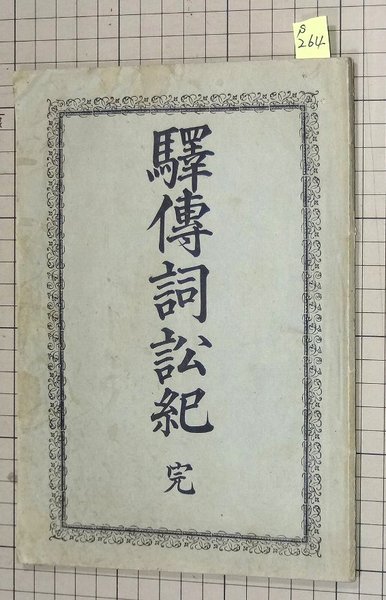 驛傳詞訟紀
完
264